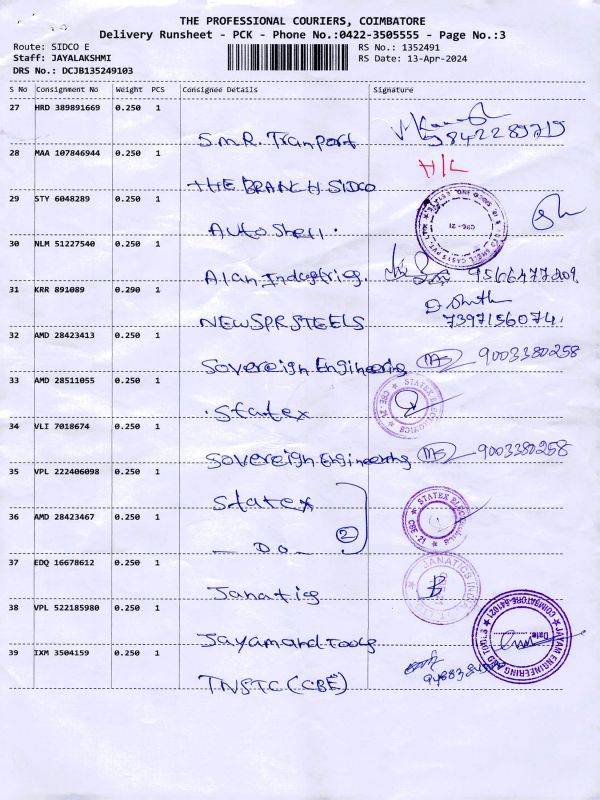 THE PROFESSIONAL COURIERS, COIMBATORE
Delivery Runsheet - PCK - Phone No.:0422-3505555 - Page No.:3
Route: SIDCO E
RS No.: 1352491
Staff: JAYALAKSHMI
RS Date: 13-Apr-2024
DRS No.: DCJB135249103
S No Consignment No Weight PCS Consignee Details Signature
27 HRD 389891669 0.250 1
S.M.R. Tranport 9842289719
28 MAA 107846944 0.250 1
H/L
THE BRANCH SIDCO
29 STY 6048289 0.250 1
Auto Shell.
CBE - 21
30 NLM 51227540 0.250 1
Alan Industries. 9566477209
31 KRR 891089 0.290 1
NEWSPRSTEELS 7397156074
32 AMD 28423413 0.250 1
Sovereign Engineering MS 9003380258
33 AMD 28511055 0.250 1
Statex
STATEX ELECTRONICS CBE. 21
34 VLI 7018674 0.250 1
Sovereign Engineering MS 9003380258
35 VPL 222406098 0.250 1
Statex
2
36 AMD 28423467 0.250 1
- Do -
STATEX CBE. 21
37 EDQ 16678612 0.250 1
Janatis
JANATICS INDIA
38 VPL 522185980 0.250 1
Jayamand Tools
JAYAM ENGINEERING STUDD TOOLS COIMBATORE-641021
Date:
39 IXM 3504159 0.250 1
TNSTC (CBE)